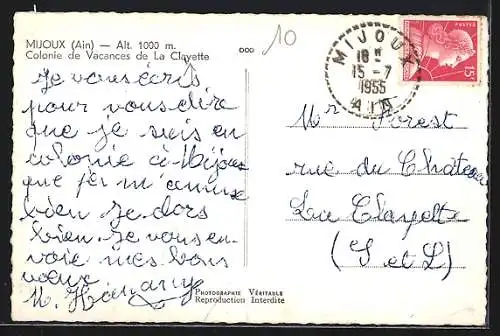 MIJOUX (Ain) — Alt. 1000 m.
Colonie de Vacances de La Clayette
DOD
10
MIJOUX
18 H
15-7
1955
AIN
POSTES
15F
Je vous écris
pour vous dire
que je suis en
colonie à Mijoux
que je m'amuse
bien Je dors
bien Je vous en-
voie mes bons
vœux
Mr Forest
rue du Château
La Clayette
(S et L)
PHOTOGRAPHIE VÉRITABLE
Reproduction Interdite